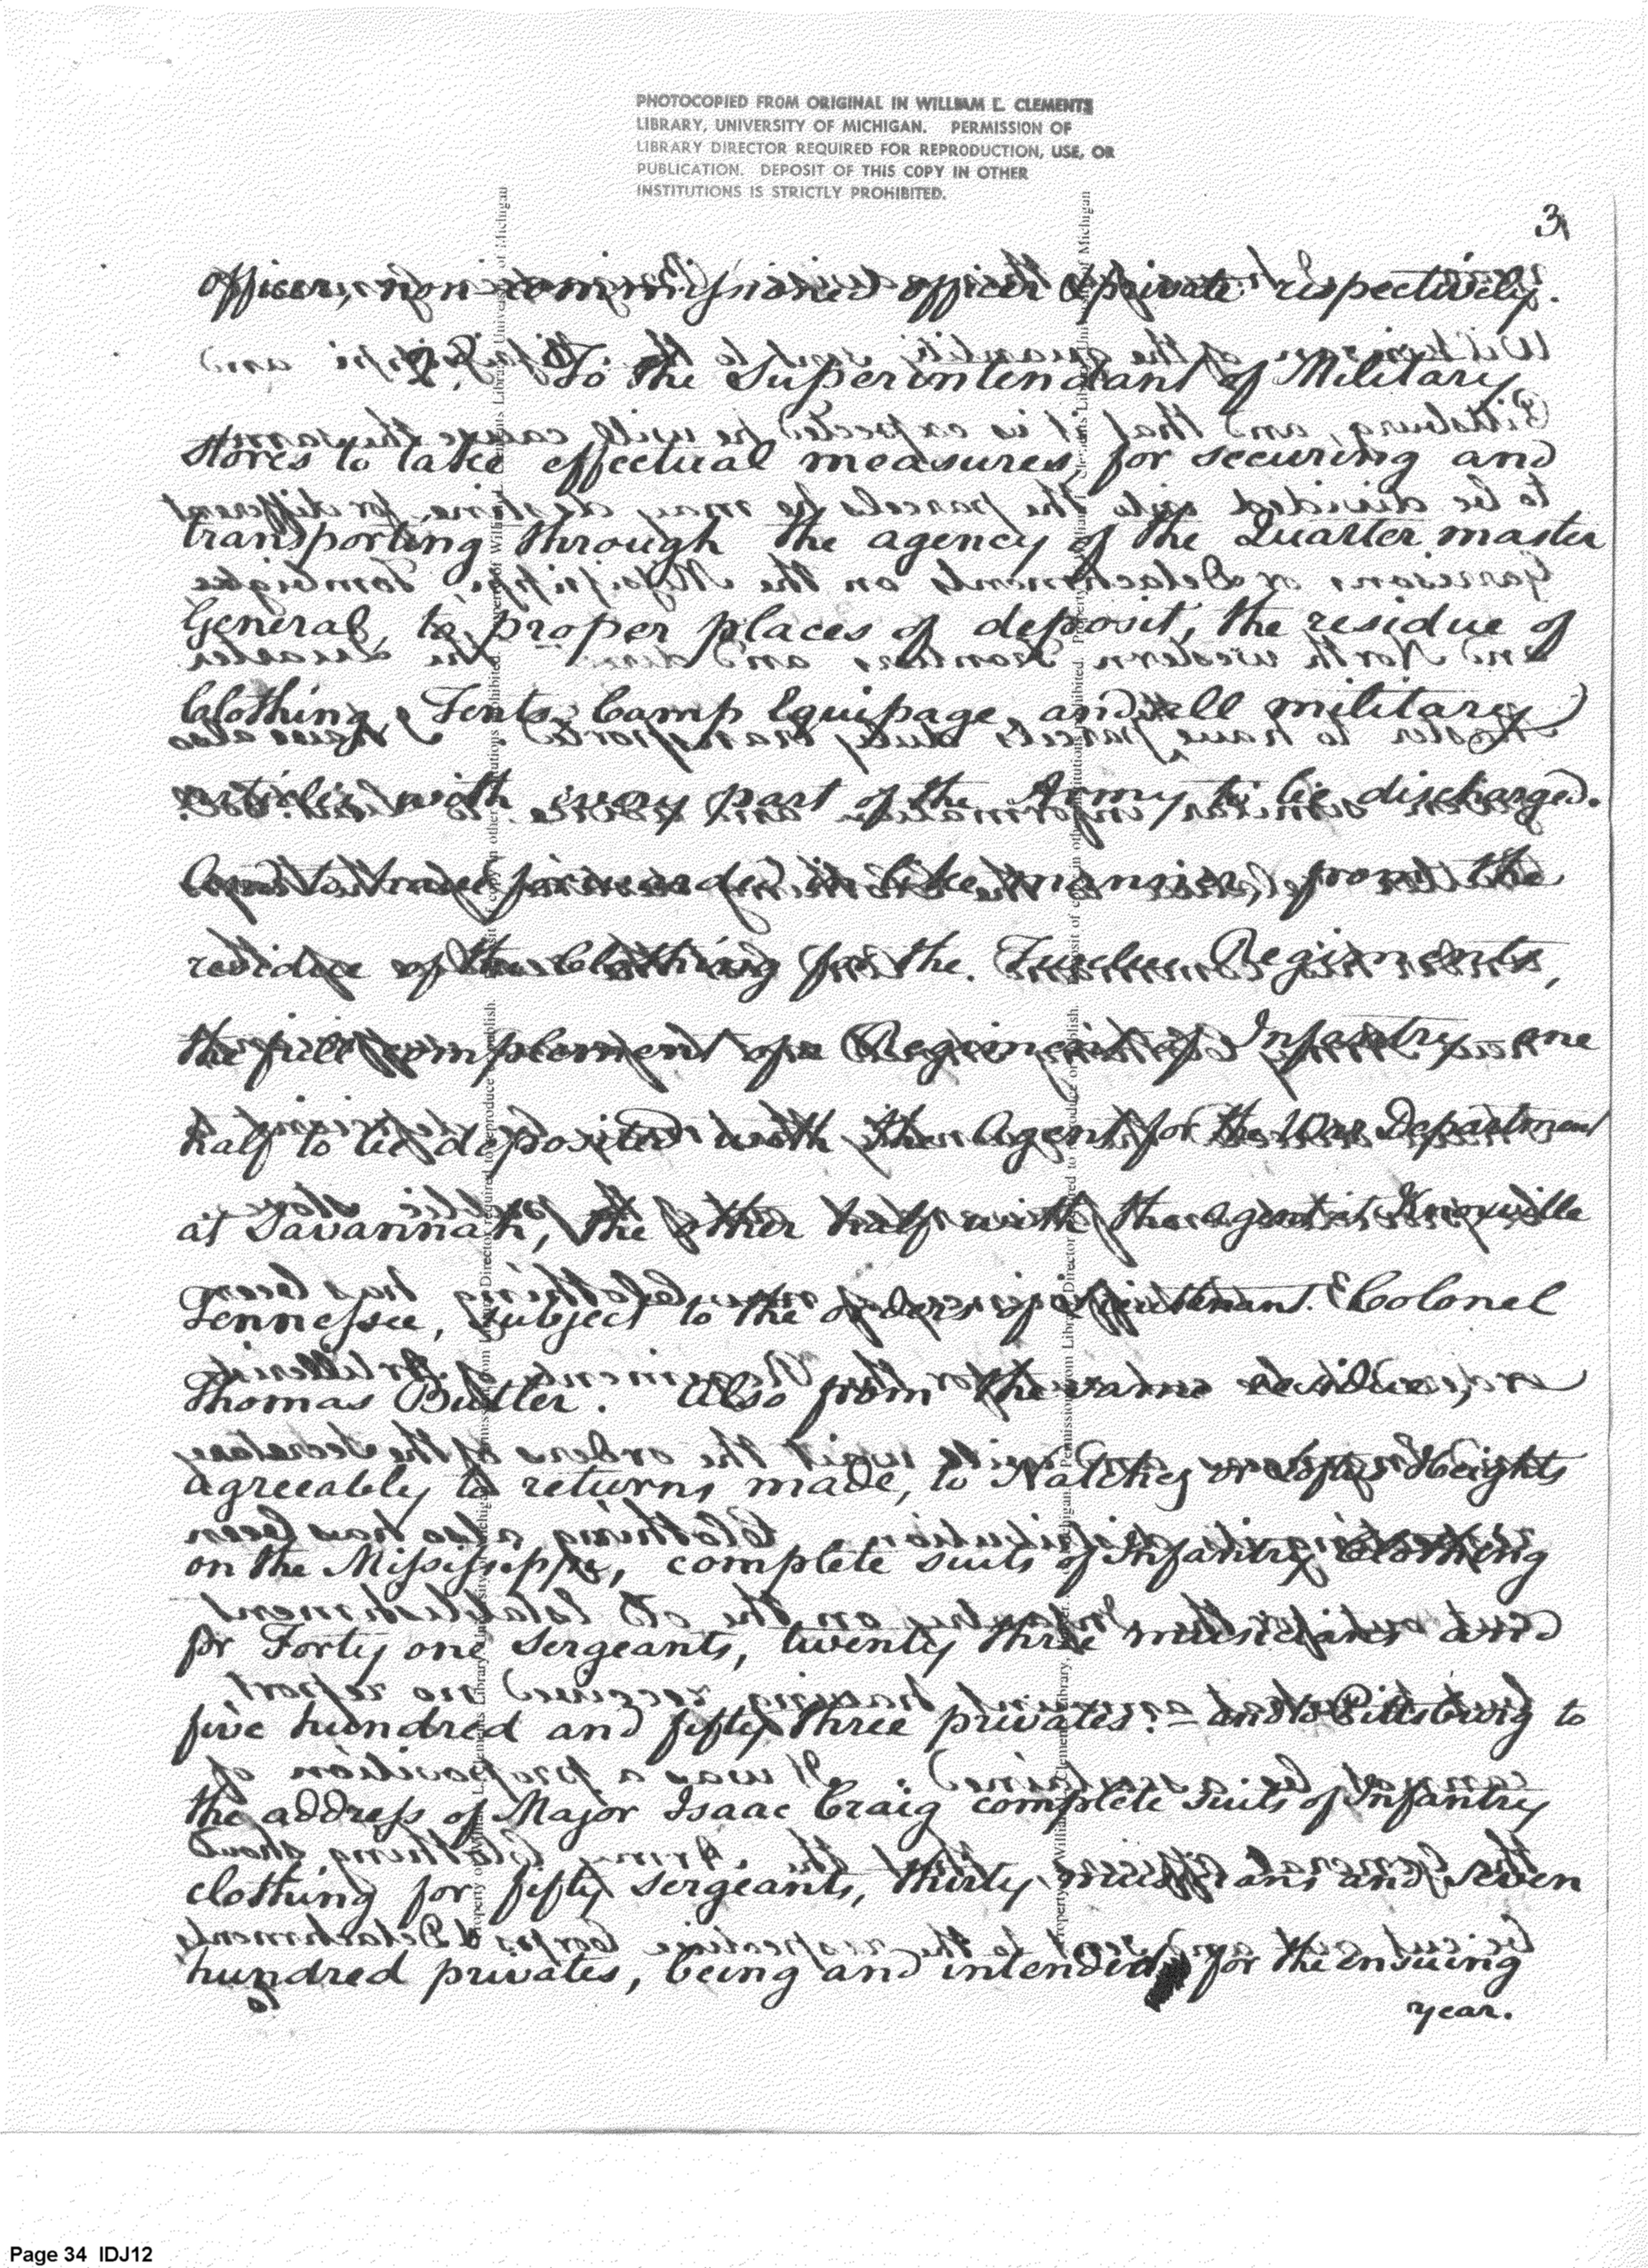 PHOTOCOPIED FROM ORIGINAL IN WILLIAM L. CLEMENTS
LIBRARY, UNIVERSITY OF MICHIGAN. PERMISSION OF
LIBRARY DIRECTOR REQUIRED FOR REPRODUCTION, USE, OR
PUBLICATION. DEPOSIT OF THIS COPY IN OTHER
INSTITUTIONS IS STRICTLY PROHIBITED.
3
officer, non commissioned officer & private respectively.
2. To the Superintendant of Military
stores to take effectual measures, for securing and
transporting through the agency of the Quarter master
General, to proper places of deposit, the residue of
Clothing, Tents, Camp Equipage, and all military
articles with every part of the Army to be discharged.
forwarded in like manner, from the
residue of the Clothing for the Twelve Regiments,
the full complement of a Regiment of Infantry one
half to be deposited with the Agent for the War Department
at Savannah, the other half with the agent at Knoxville
Tennessee, subject to the orders of Lieutenant Colonel
Thomas Butler. Also from the same residue,
agreeably to returns made, to Natches or Loftus Heights
on the Mississippi, complete suits of Infantry Clothing
for Forty one Sergeants, twenty three musicians and
five hundred and fifty three privates. - and to Pittsburg to
the address of Major Isaac Craig complete suits of Infantry
clothing for fifty sergeants, thirty musicians and seven
hundred privates, being and intended for the ensuing
year.
Page 34 IDJ12